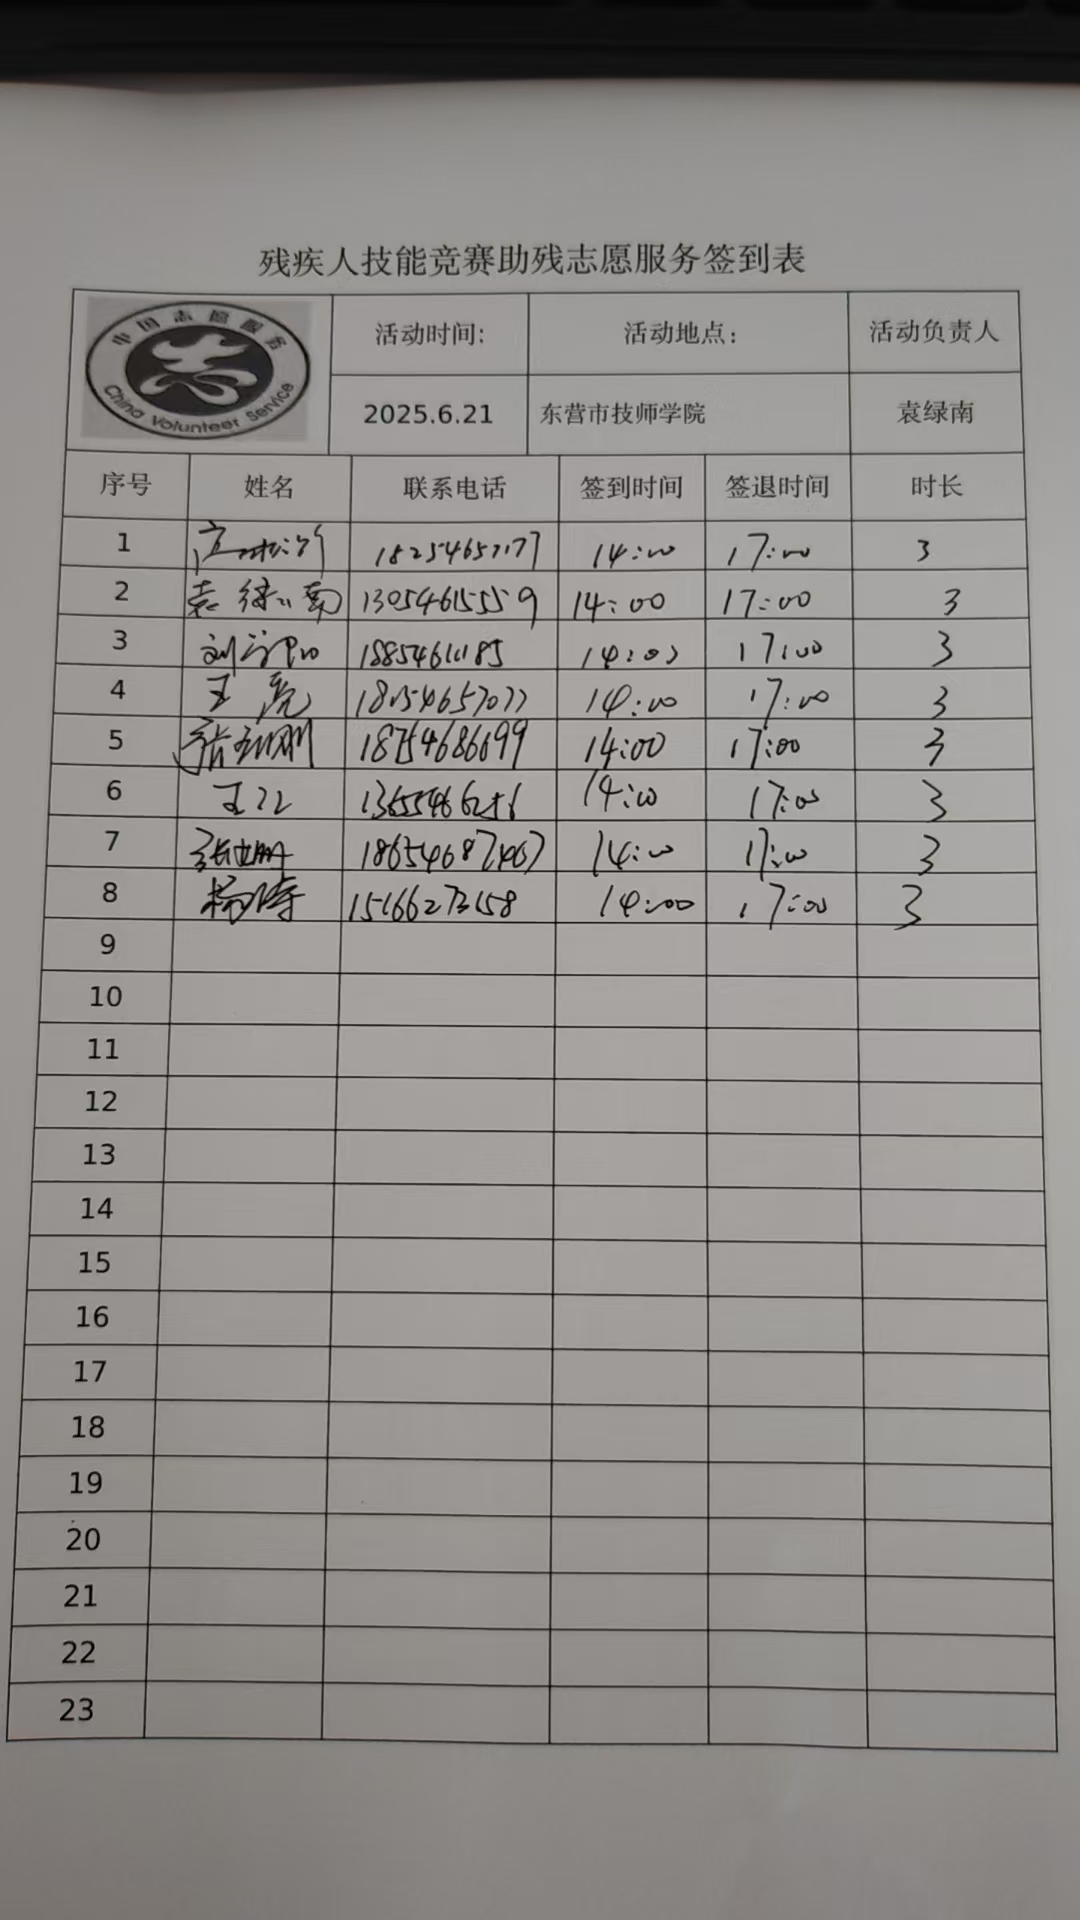 残疾人技能竞赛助残志愿服务签到表
中国志愿服务
China Volunteer Service
活动时间: 活动地点: 活动负责人
2025.6.21 东营市技师学院 袁绿南
序号 姓名 联系电话 签到时间 签退时间 时长
1 14:00 17:00 3
2 袁绿南 13054615559 14:00 17:00 3
3 刘 14:00 17:00 3
4 王亮 14:00 17:00 3
5 18754686699 14:00 17:00 3
6 王 14:00 17:00 3
7 张 18654687467 14:00 17:00 3
8 杨涛 15166273158 14:00 17:00 3
9
10
11
12
13
14
15
16
17
18
19
20
21
22
23